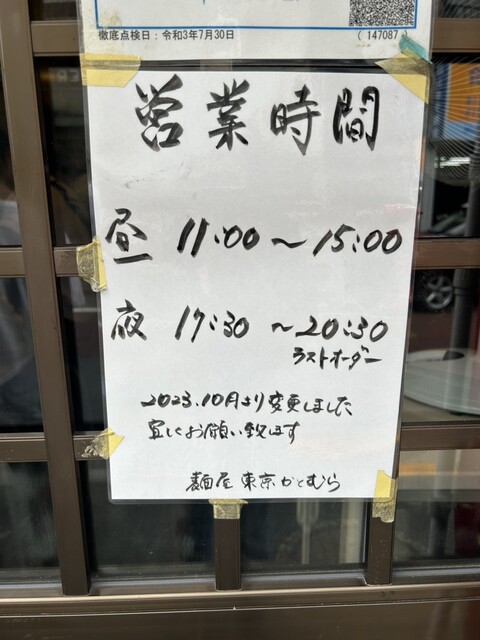 徹底点検日:令和3年7月30日 (147087)
営業時間
昼 11:00～15:00
夜 17:30～20:30
ラストオーダー
2023.10月より変更しました
宜しくお願い致します
麺屋 東京かとむら